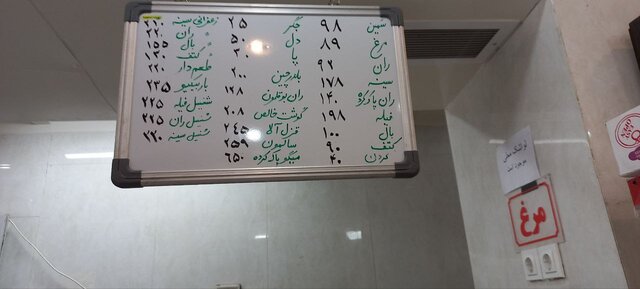 سین ۹۸
مرغ ۸۹
ران ۹۲
سینه ۱۷۸
ران پاک کرده ۱۴۰
فیله ۱۹۸
بال ۱۰۰
کتف ۹۰
گردن ۴۰
جگر ۲۵
دل ۵۰
پا ۳۰
بلدرچین ۲۰۰
ران بوقلمون ۱۲۸
گوشت خالص ۲۰۸
قزل آلا ۲۴۵
سالمون ۲۵۹
میگو پاک کرده ۶۵۰
زعفرانی سینه ۲۱۰
" ران ۲۲۰
" بال ۱۵۵
" کتف ۱۳۰
طعم دار ۲۲۰
باربیکیو ۲۳۵
شنیل فیله ۲۲۵
شنیل ران ۲۲۵
شنیل سینه ۲۲۰
موجود است
مرغ